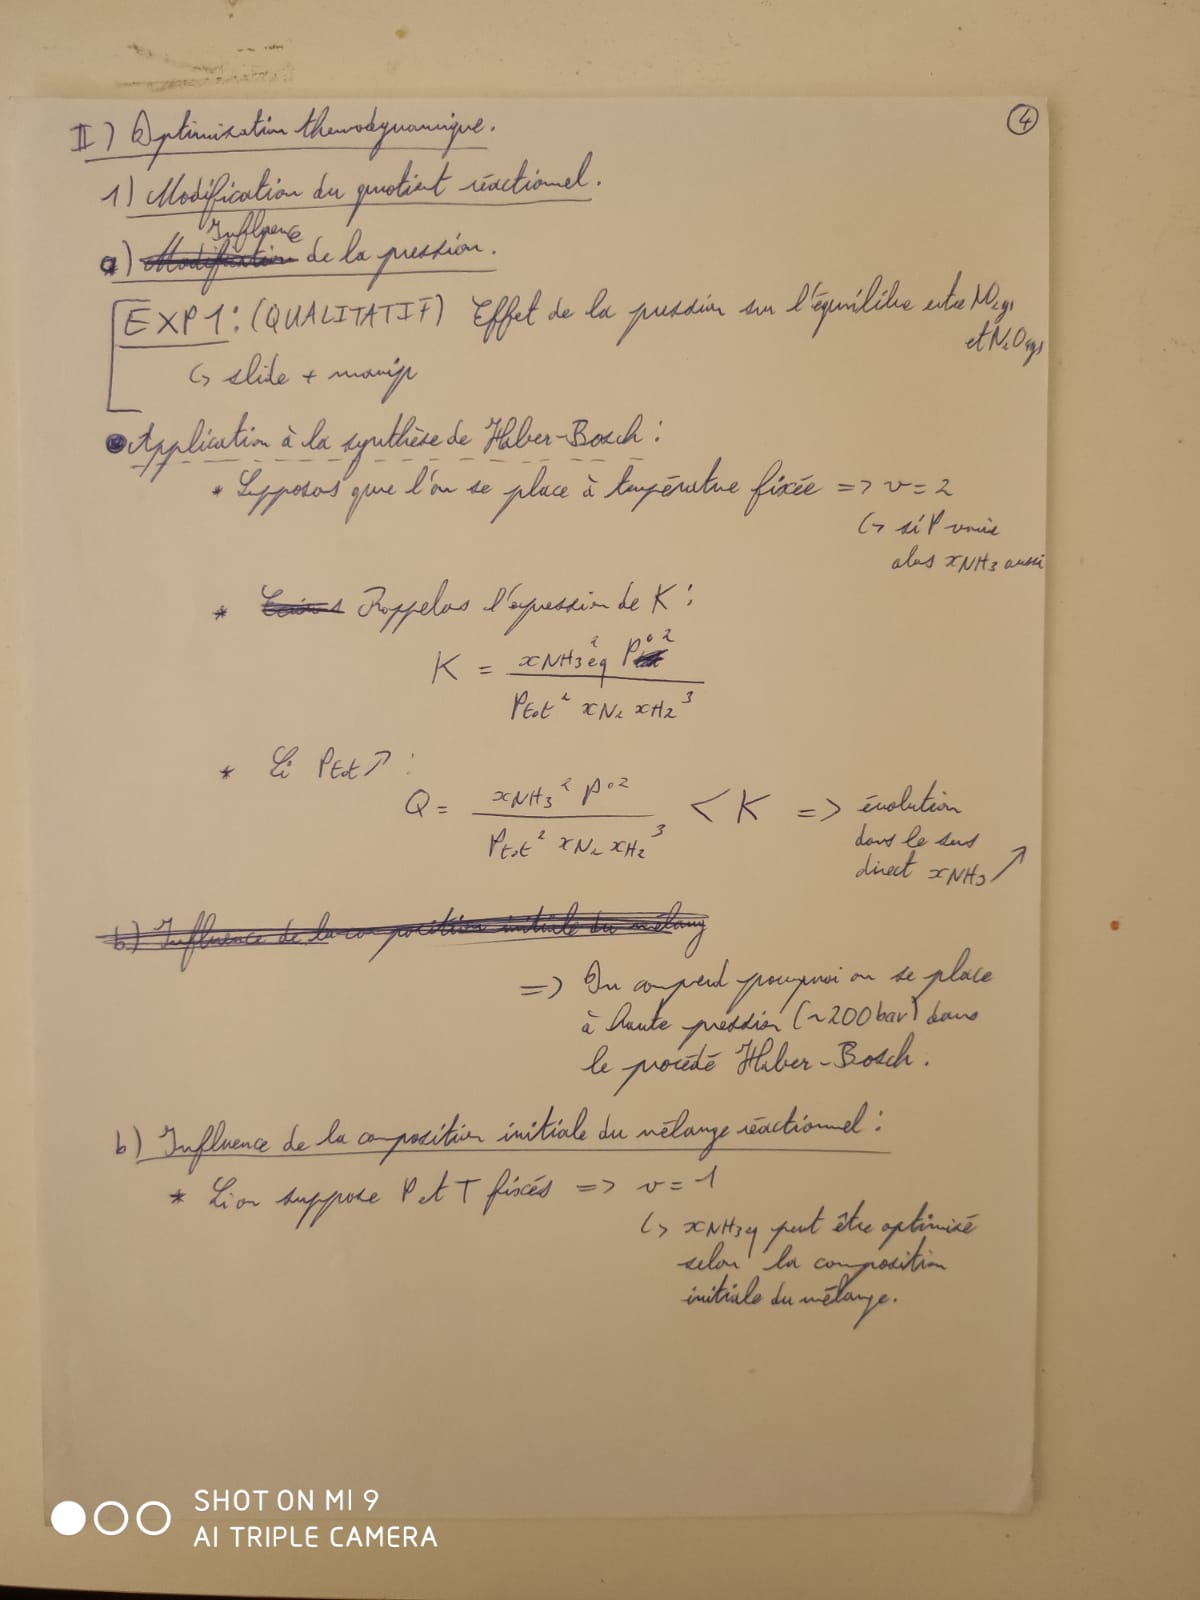 ④
II) Optimisation thermodynamique.
1) Modification du quotient réactionnel.
Influence
a) Modification de la pression.
EXP1: (QUALITATIF) Effet de la pression sur l'équilibre entre NO₂(g)
et N₂O₄(g)
↳ slide + manip
• Application à la synthèse de Haber-Bosch :
* Supposons que l'on se place à température fixée => v = 2
↳ si P varie
alors xNH₃ aussi
* Rappelons l'expression de K :
K = xNH₃eq² P°² / Ptot² xN₂ xH₂³
* Si Ptot ↗ :
Q = xNH₃² P°² / Ptot² xN₂ xH₂³ < K => évolution
dans le sens
direct xNH₃ ↗
b) Influence de la composition initiale du mélang
=> On comprend pourquoi on se place
à haute pression (~200bar) dans
le procédé Haber-Bosch.
b) Influence de la composition initiale du mélange réactionnel :
* Si on suppose P et T fixés => v = 1
↳ xNH₃eq peut être optimisé
selon la composition
initiale du mélange.
SHOT ON MI 9
AI TRIPLE CAMERA